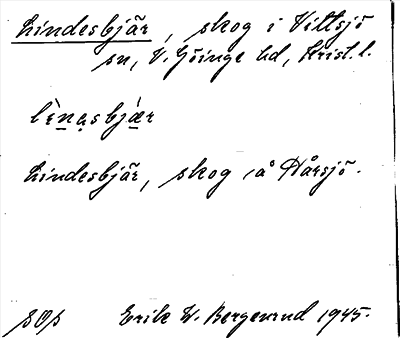 Lindesbjär, skog i Vittsjö
sn, V. Göinge hd, Krist. l.
lìnasbjær
Lindesbjär, skog å Hårsjö.
Erik W. Bergenrud 1945.